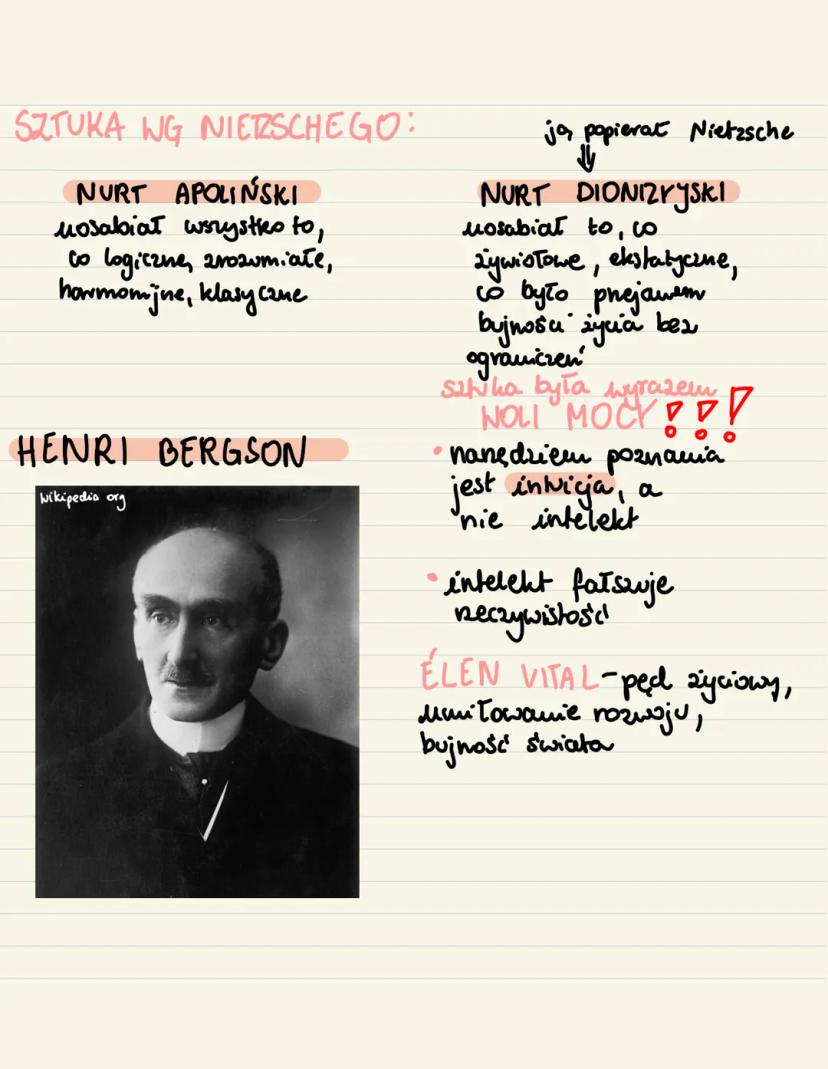 SZTUKA WG NIETZSCHEGO:
ją popierał Nietzsche
NURT APOLIŃSKI
uosabiał wszystko to,
co logiczne, zrozumiałe,
harmonijne, klasyczne
NURT DIONIZYJSKI
uosabiał to, co
żywiołowe, ekstatyczne,
co było przejawem
bujności życia bez
ograniczeń
sztuka była wyrazem
WOLI MOCY!!!
HENRI BERGSON
wikipedia org
• narzędziem poznania
jest intuicja, a
nie intelekt
• intelekt fałszuje
rzeczywistość
ÉLEN VITAL - pęd życiowy,
umiłowanie rozwoju,
bujność świata